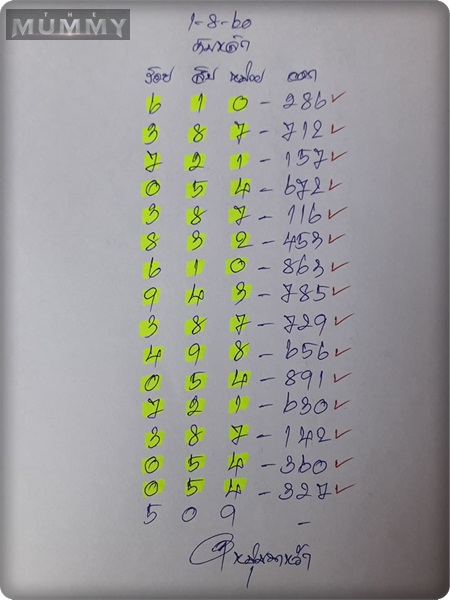 THE
MUMMY
1-8-60
ร้อย สิบ หน่วย ออก
6 1 0 - 286 ✓
3 8 7 - 712 ✓
7 2 1 - 157 ✓
0 5 4 - 672 ✓
3 8 7 - 116 ✓
8 3 2 - 453 ✓
6 1 0 - 863 ✓
9 4 3 - 785 ✓
3 8 7 - 729 ✓
4 9 8 - 656 ✓
0 5 4 - 891 ✓
7 2 1 - 630 ✓
3 8 7 - 142 ✓
0 5 4 - 360 ✓
0 5 4 - 327 ✓
5 0 9 -